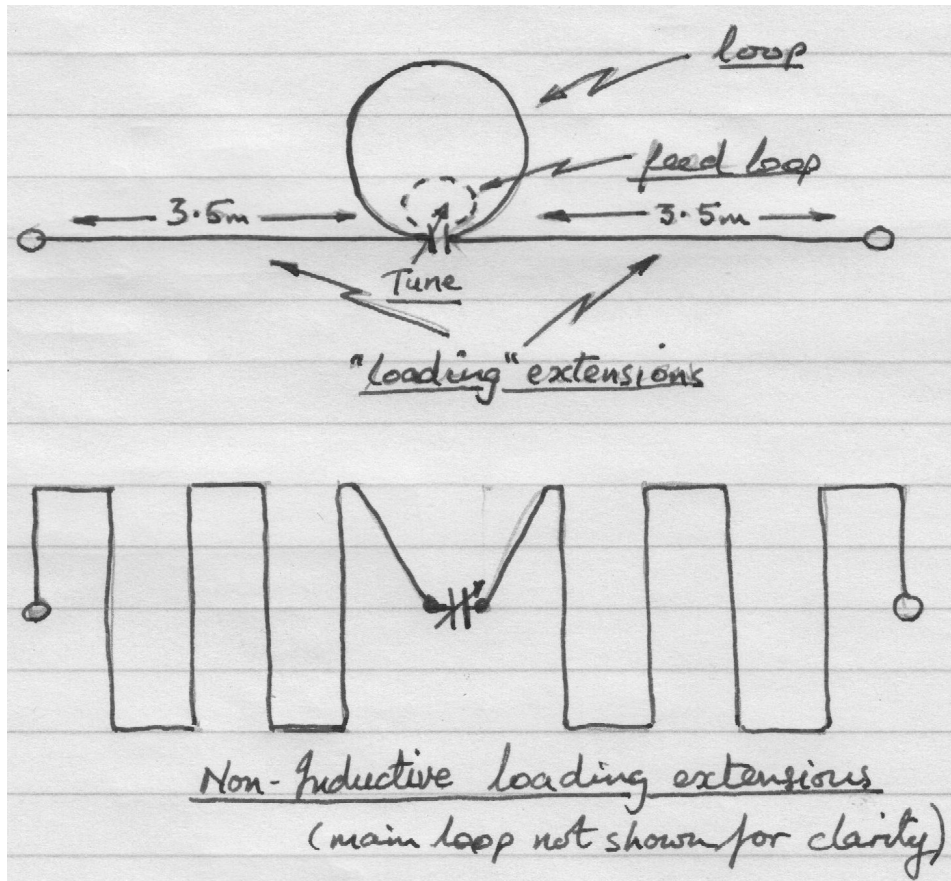 loop
feed loop
3.5m
3.5m
Tune
"loading" extensions
Non-Inductive loading extensions
(main loop not shown for clarity)